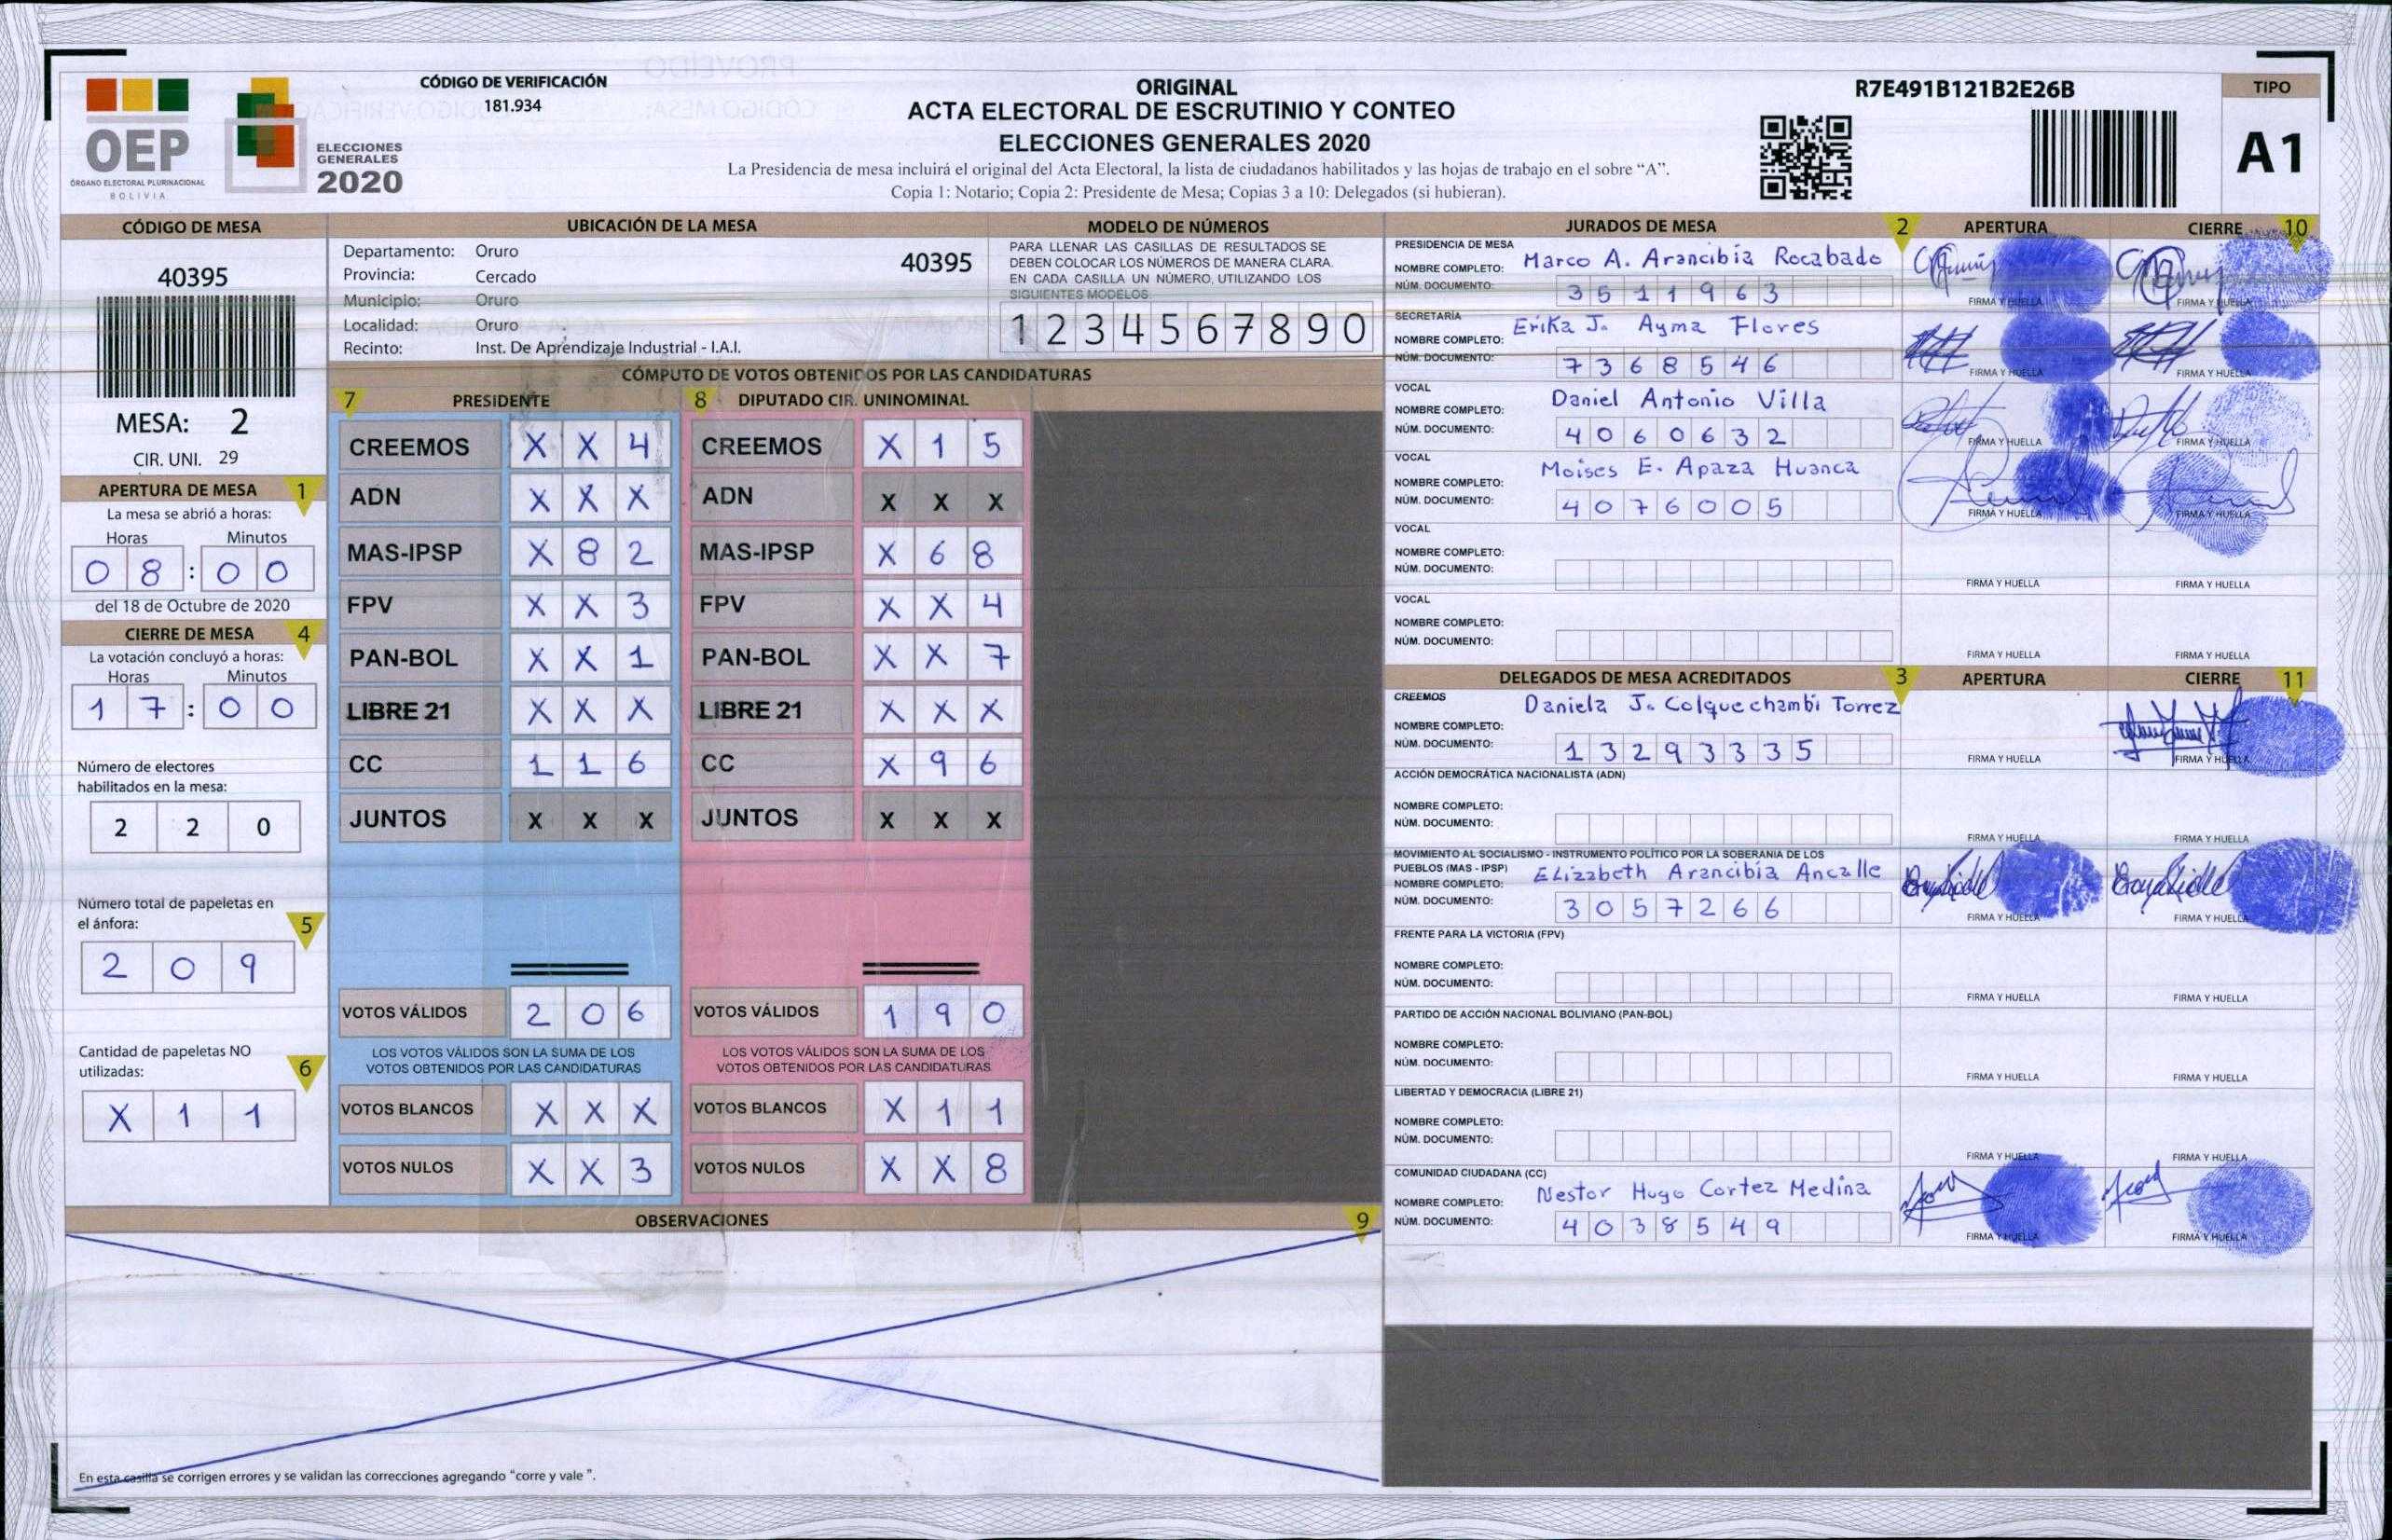 CÓDIGO DE VERIFICACIÓN
181.934
OEP
ÓRGANO ELECTORAL PLURINACIONAL
BOLIVIA
ELECCIONES
GENERALES
2020
ORIGINAL
ACTA ELECTORAL DE ESCRUTINIO Y CONTEO
ELECCIONES GENERALES 2020
La Presidencia de mesa incluirá el original del Acta Electoral, la lista de ciudadanos habilitados y las hojas de trabajo en el sobre “A”.
Copia 1: Notario; Copia 2: Presidente de Mesa; Copias 3 a 10: Delegados (si hubieran).
R7E491B121B2E26B
TIPO
A1
CÓDIGO DE MESA
40395
MESA: 2
CIR. UNI. 29
APERTURA DE MESA 1
La mesa se abrió a horas:
Horas Minutos
0 8 : 0 0
del 18 de Octubre de 2020
CIERRE DE MESA 4
La votación concluyó a horas:
Horas Minutos
1 7 : 0 0
Número de electores
habilitados en la mesa:
2 2 0
Número total de papeletas en
el ánfora: 5
2 0 9
Cantidad de papeletas NO
utilizadas: 6
X 1 1
UBICACIÓN DE LA MESA
Departamento: Oruro
40395
Provincia: Cercado
Municipio: Oruro
Localidad: Oruro
Recinto: Inst. De Aprendizaje Industrial - I.A.I.
MODELO DE NÚMEROS
PARA LLENAR LAS CASILLAS DE RESULTADOS SE
DEBEN COLOCAR LOS NÚMEROS DE MANERA CLARA.
EN CADA CASILLA UN NÚMERO, UTILIZANDO LOS
SIGUIENTES MODELOS:
1 2 3 4 5 6 7 8 9 0
CÓMPUTO DE VOTOS OBTENIDOS POR LAS CANDIDATURAS
7 PRESIDENTE 8 DIPUTADO CIR. UNINOMINAL
CREEMOS X X 4 CREEMOS X 1 5
ADN X X X ADN X X X
MAS-IPSP X 8 2 MAS-IPSP X 6 8
FPV X X 3 FPV X X 4
PAN-BOL X X 1 PAN-BOL X X 7
LIBRE 21 X X X LIBRE 21 X X X
CC 1 1 6 CC X 9 6
JUNTOS X X X JUNTOS X X X
VOTOS VÁLIDOS 2 0 6 VOTOS VÁLIDOS 1 9 0
LOS VOTOS VÁLIDOS SON LA SUMA DE LOS LOS VOTOS VÁLIDOS SON LA SUMA DE LOS
VOTOS OBTENIDOS POR LAS CANDIDATURAS VOTOS OBTENIDOS POR LAS CANDIDATURAS
VOTOS BLANCOS X X X VOTOS BLANCOS X 1 1
VOTOS NULOS X X 3 VOTOS NULOS X X 8
OBSERVACIONES 9
En esta casilla se corrigen errores y se validan las correcciones agregando “corre y vale ”.
JURADOS DE MESA 2 APERTURA CIERRE 10
PRESIDENCIA DE MESA
NOMBRE COMPLETO: Marco A. Arancibia Rocabado
NÚM. DOCUMENTO: 3 5 1 1 9 6 3
FIRMA Y HUELLA FIRMA Y HUELLA
SECRETARÍA
NOMBRE COMPLETO: Erika J. Ayma Flores
NÚM. DOCUMENTO: 7 3 6 8 5 4 6
FIRMA Y HUELLA FIRMA Y HUELLA
VOCAL
NOMBRE COMPLETO: Daniel Antonio Villa
NÚM. DOCUMENTO: 4 0 6 0 6 3 2
FIRMA Y HUELLA FIRMA Y HUELLA
VOCAL
NOMBRE COMPLETO: Moises E. Apaza Huanca
NÚM. DOCUMENTO: 4 0 7 6 0 0 5
FIRMA Y HUELLA FIRMA Y HUELLA
VOCAL
NOMBRE COMPLETO:
NÚM. DOCUMENTO:
FIRMA Y HUELLA FIRMA Y HUELLA
VOCAL
NOMBRE COMPLETO:
NÚM. DOCUMENTO:
FIRMA Y HUELLA FIRMA Y HUELLA
DELEGADOS DE MESA ACREDITADOS 3 APERTURA CIERRE 11
CREEMOS
NOMBRE COMPLETO: Daniela J. Colquechambi Torrez
NÚM. DOCUMENTO: 1 3 2 9 3 3 3 5
FIRMA Y HUELLA FIRMA Y HUELLA
ACCIÓN DEMOCRÁTICA NACIONALISTA (ADN)
NOMBRE COMPLETO:
NÚM. DOCUMENTO:
FIRMA Y HUELLA FIRMA Y HUELLA
MOVIMIENTO AL SOCIALISMO - INSTRUMENTO POLÍTICO POR LA SOBERANIA DE LOS
PUEBLOS (MAS - IPSP)
NOMBRE COMPLETO: Elizabeth Arancibia Ancalle
NÚM. DOCUMENTO: 3 0 5 7 2 6 6
FIRMA Y HUELLA FIRMA Y HUELLA
FRENTE PARA LA VICTORIA (FPV)
NOMBRE COMPLETO:
NÚM. DOCUMENTO:
FIRMA Y HUELLA FIRMA Y HUELLA
PARTIDO DE ACCIÓN NACIONAL BOLIVIANO (PAN-BOL)
NOMBRE COMPLETO:
NÚM. DOCUMENTO:
FIRMA Y HUELLA FIRMA Y HUELLA
LIBERTAD Y DEMOCRACIA (LIBRE 21)
NOMBRE COMPLETO:
NÚM. DOCUMENTO:
FIRMA Y HUELLA FIRMA Y HUELLA
COMUNIDAD CIUDADANA (CC)
NOMBRE COMPLETO: Nestor Hugo Cortez Medina
NÚM. DOCUMENTO: 4 0 3 8 5 4 9
FIRMA Y HUELLA FIRMA Y HUELLA